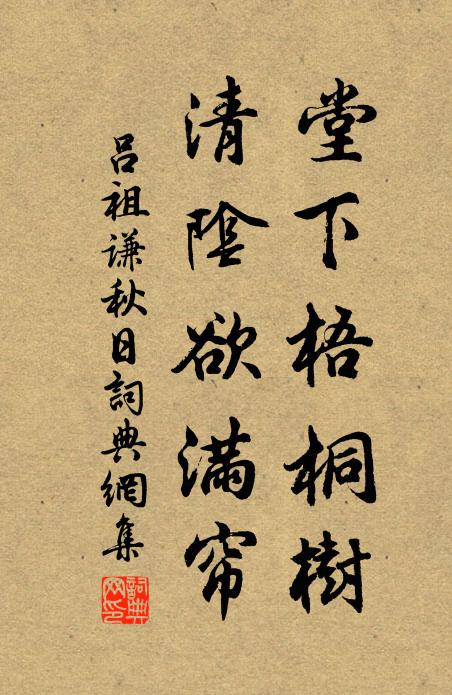 堂下梧桐樹
清陰欲滿帘
吕祖谦秋日詞典網集
詞典网印